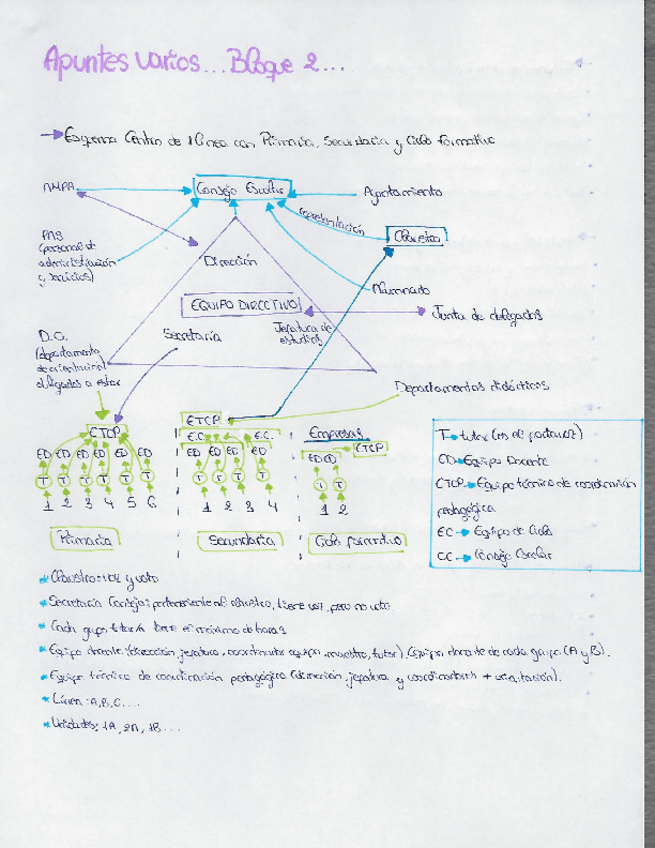 Apuntes varios... Bloque 2...
Esquema Centro de 1 línea con Primaria, Secundaria y Ciclo formativo
AMPA
Consejo Escolar
Ayuntamiento
representación
Claustro
PAS
(personal de
administración
y servicios)
Dirección
Alumnado
EQUIPO DIRECTIVO
Junta de delegados
Secretaría
Jefatura de
estudios
D.O.
(departamento
de orientación)
obligados a estar
Departamentos didácticos
ETCP
ETCP
E.C.
E.C.
Empresas
ETCP
ED ED ED ED ED ED
ED ED ED ED
ED ED
T T T T T T
T T T T
T T
1 2 3 4 5 6
1 2 3 4
1 2
Primaria
Secundaria
Ciclo formativo
T tutor (es el portavoz)
ED Equipo Docente
ETCP Equipo técnico de coordinación
pedagógica
EC Equipo de Ciclo
CE Consejo Escolar
Claustro: voz y voto
Secretaría Consejo: perteneciente al claustro, tiene voz, pero no voto.
Cada grupo tutor/a tiene el máximo de horas
Equipo docente (dirección, jefatura, coordinador equipo, maestro, tutor). (Equipo docente de cada grupo (A y B).
Equipo técnico de coordinación pedagógica (dirección, jefatura y coordinadores + orientación).
Línea: A, B, C....
Unidades: 1A, 2A, 1B...